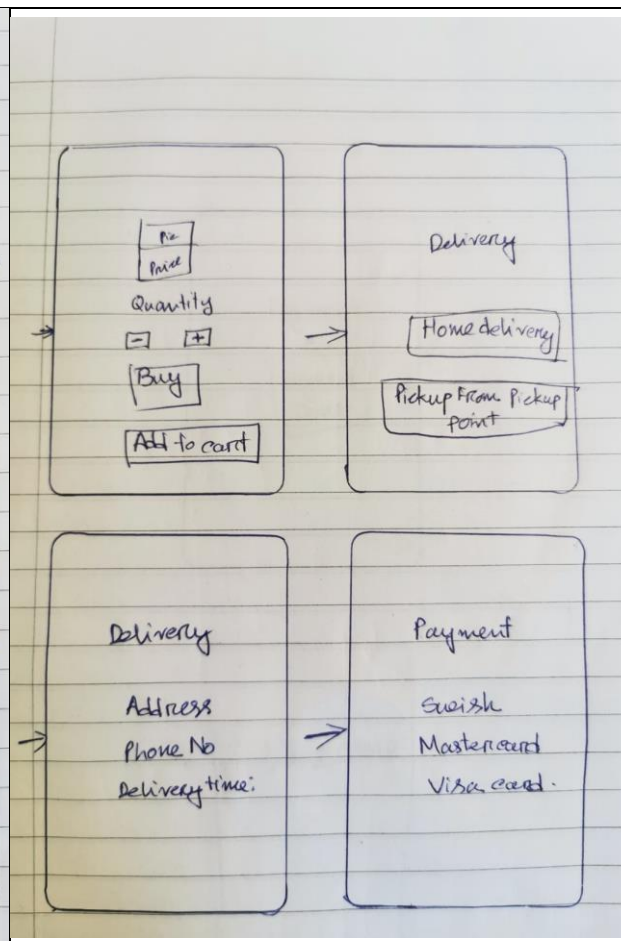 Pic
Price
Quantity
- +
Buy
Add to cart
Delivery
Home delivery
Pickup From Pickup
point
Delivery
Address
Phone No
Delivery time:
Payment
Swish
Mastercard
Visa card.